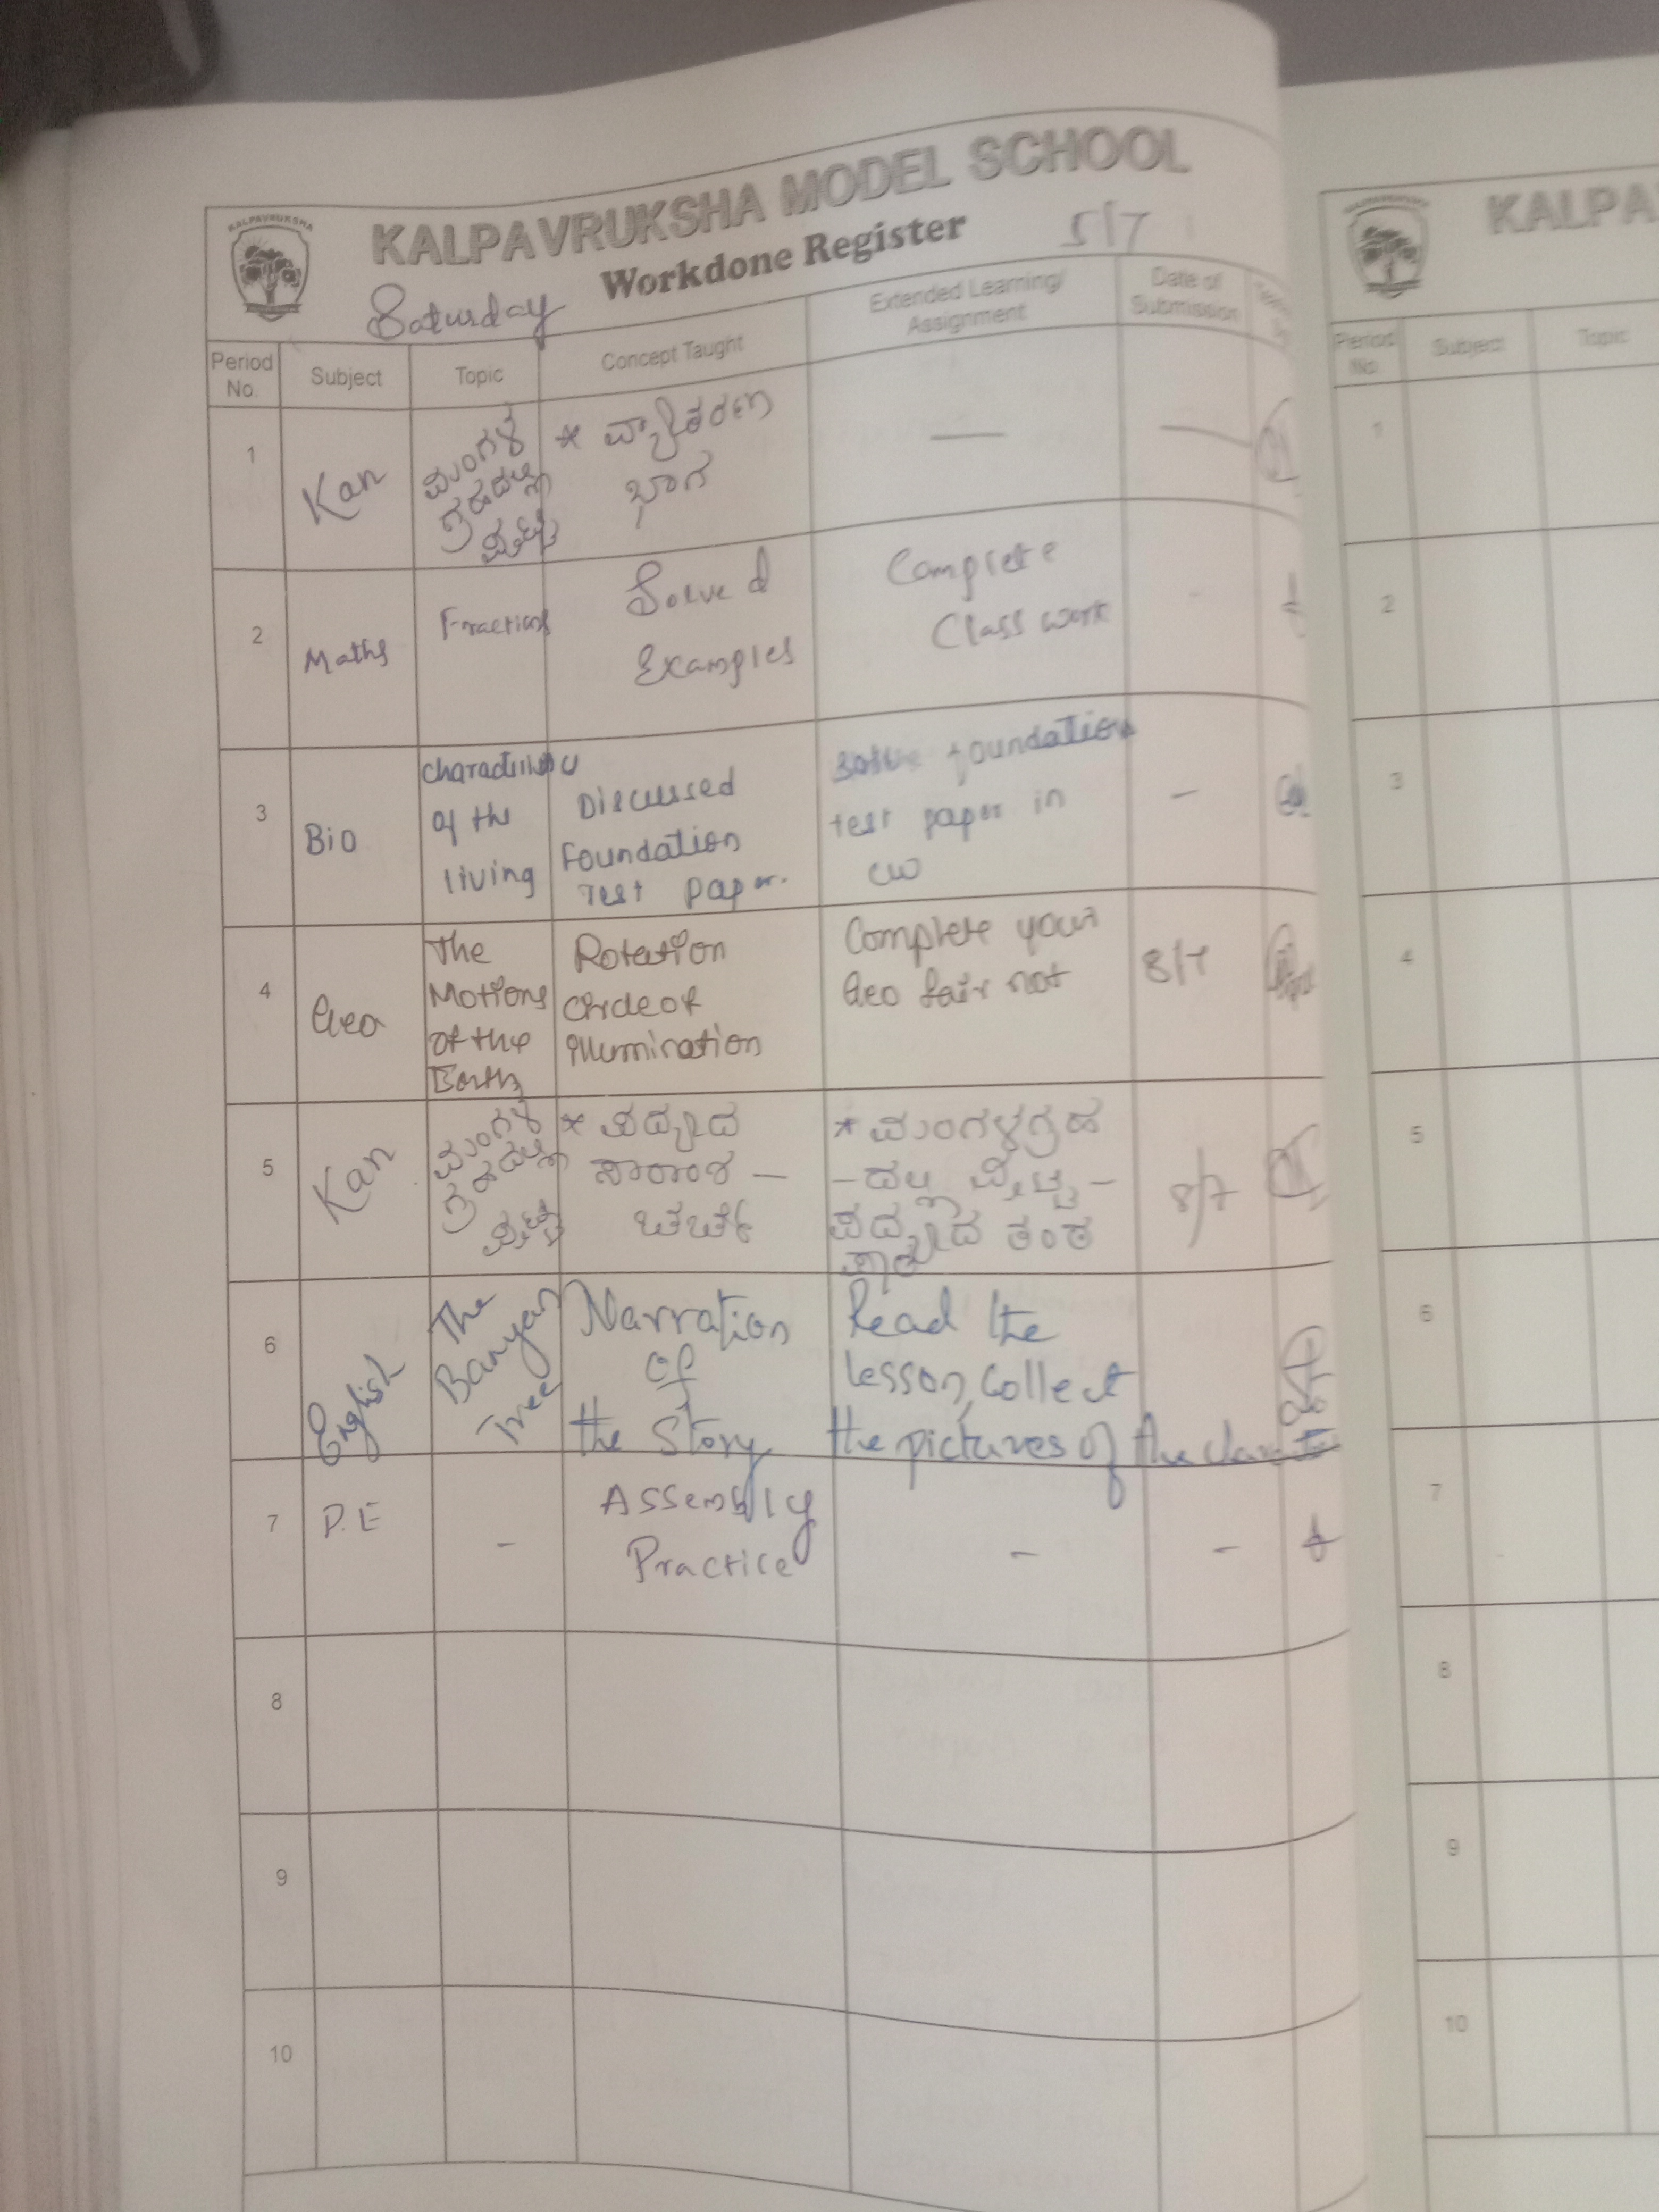 KALPAVRUKSHA
KALPAVRUKSHA MODEL SCHOOL
Workdone Register 5/7
Saturday
Period No. Subject Topic Concept Taught Extended Learning/ Assignment Date of Submission
1 Kan ಮಂಗಳ ಗ್ರಹದಲ್ಲಿ * ವ್ಯಾಕರಣ ಭಾಗ —
2 Maths Fractions Solved Examples Complete Class work
3 Bio of the living Discussed Foundation Test paper. Solve foundation test paper in CW -
4 Geo The Motions of the Earth Rotation Circle of illumination Complete your Geo fair not 8/7
5 Kan ಮಂಗಳ ಗ್ರಹದಲ್ಲಿ * ಪದ್ಯದ ಸಾರಾಂಶ — ಚರ್ಚೆ * ಮಂಗಳಗ್ರಹ -ದಲ್ಲಿ ಪದ್ಯದ 8/7
6 English The Banyan Tree Narration of the Story Read the lesson, collect the pictures of the
7 P.E - Assembly Practice - -
8
9
10
KALPA
Period No. Subject Topic
1
2
3
4
5
6
7
8
9
10